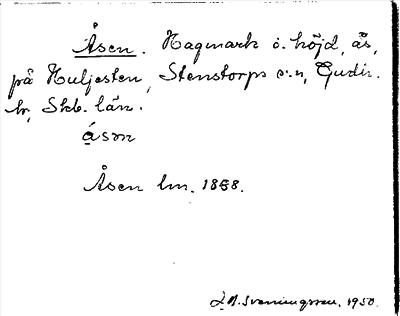 Åsen. Hagmark o. höjd, ås,
på Huljesten, Stenstorps s:n, Gudh.
hd, Skb. län.
åsən
Åsen lm. 1868.
Sveningsson. 1950.